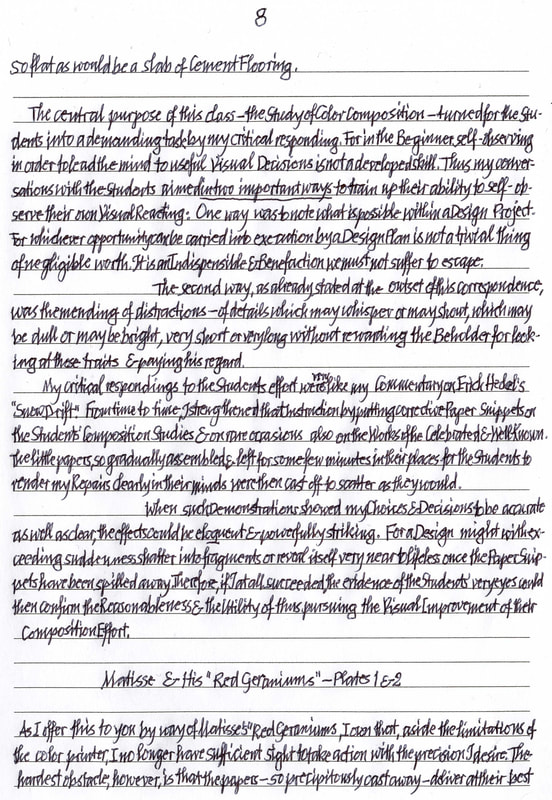 8
so flat as would be a slab of Cement Flooring.
The central purpose of this class – the Study of Color Composition – turned for the Stu-
dents into a demanding task by my critical responding. For in the Beginner self-observing
in order to lead the mind to useful Visual Decisions is not a developed skill. Thus my conver-
sations with the Students aimed in two important ways to train up their ability to self-ob-
serve their own Visual Reacting: One way was to note what is possible within a Design Project.
For whichever opportunity can be carried into execution by a Design Plan is not a trivial thing
of negligible worth. It is an Indispensible & Benefaction we must not suffer to escape.
The second way, as already stated at the outset of this correspondence,
was the mending of distractions – of details which may whisper or may shout, which may
be dull or may be bright, very short or very long without rewarding the Beholder for look-
ing at these traits & paying his regard.
My critical respondings to the Students effort were very like my Commentary on Erick Heckel's
"Snow Drift". From time to time, I strengthened that instruction by putting corrective Paper Snippets on
the Students' Composition Studies & on rare occasions also on the Works of the Celebrated & Well Known.
The little papers, so gradually assembled & left for some few minutes in their places for the Students to
render my Repairs clearly in their minds were then cast off to scatter as they would.
When such Demonstrations showed my Choices & Decisions to be accurate
as well as clear, the effects could be eloquent & powerfully striking. For a Design might with ex-
ceeding suddenness shatter into fragments or reveal itself very near to lifeless once the Paper Snip-
pets have been spilled away. Therefore, if I at all succeeded, the evidence of the Students' very eyes could
then confirm the Reasonableness & the Utility of thus pursuing the Visual Improvement of their
Composition Effort.
Matisse & His "Red Geraniums" – Plates 1 & 2
As I offer this to you by way of Matisse's "Red Geraniums, I own that, aside the limitations of
the color printer, I no longer have sufficient sight to take action with the precision I desire. The
hardest obstacle, however, is that the papers – so precipitously cast away – deliver at their best